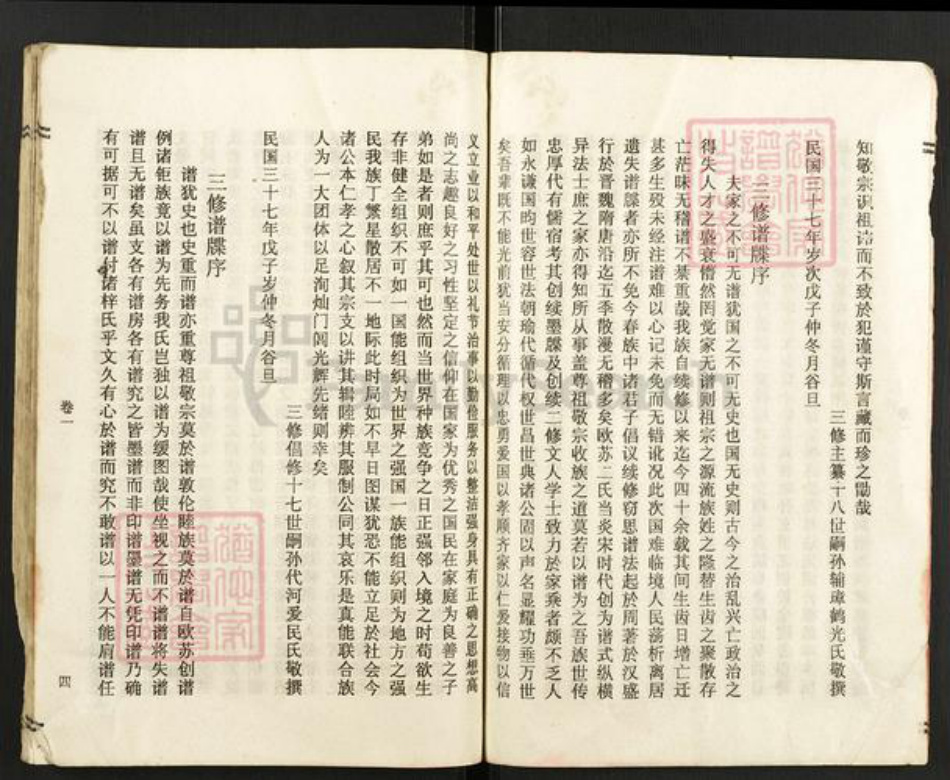 知敬宗识祖诣而不致於犯谨守斯言藏而珍之勖哉
三修主纂十八世嗣孙辅璋鹤光氏敬撰
民国三十七年岁次戊子仲冬月谷旦
三修谱牒序
夫家之不可无谱犹国之不可无史也国无史则古今之治乱兴亡政治之
得失人才之盛衰懵然罔觉家无谱则祖宗之源流族姓之隆替生齿之聚散存
亡茫昧无稽谱不禁重哉我族自续修以来迄今四十余载其间生齿日增亡迁
甚多生殁未经注谱难以心记未免而无错讹况此次国难临境人民荡析离居
遗失谱牒者亦所不免今春族中诸君子倡议续修窃思谱法起於周著於汉盛
行於晋魏隋唐沿迄五季散漫无稽多矣欧苏二氏当炎宋时代创为谱式纵横
异法士庶之家亦得知所从事盖尊祖敬宗收族之道莫若以谱为之吾族世传
忠厚代有儒宿考其创续墨牒及创续二修文人学士致力於家乘者颇不乏人
如永谦国昀世容世法朝瑜代循代权世昌世典诸公固以声名显耀功垂万世
矣吾辈既不能光前犹当安分循理以忠勇爱国以孝顺齐家以仁爱接物以信
义立业以和平处世以礼节治事以勤俭服务以整洁强身具有正确之思想高
尚之志趣良好之习性坚定之信仰在国家为优秀之国民在家庭为良善之子
弟如是者则庶乎其可也然而当世界种族竞争之日正强邻入境之时苟欲生
存非健全组织不可如一国能组织为世界之强国一族能组织则为地方之强
民我族丁繁星散居不一地际此时局如不早日图谋犹恐不能立足於社会今
诸公本仁孝之心叙其宗支以讲其辑睦辨其服制公同其哀乐是真能联合族
人为一大团体以足洵灿门闾光辉先绪则幸矣
三修倡修十七世嗣孙代河爱民氏敬撰
民国三十七年戊子岁仲冬月谷旦
三修谱牒序
谱犹史也史重而谱亦重尊祖敬宗莫於谱敦伦睦族莫於谱自欧苏创谱
例诸钜族竟以谱为先务我氏岂独以谱为缓图哉使坐视之而不谱谱将失谱
谱且无谱矣虽支各有谱房各有谱究之皆墨谱而非印谱墨谱无凭印谱乃确
有可据可不以谱付诸梓氏乎文久有心於谱而究不敢谱以一人不能肩谱任
卷一
四